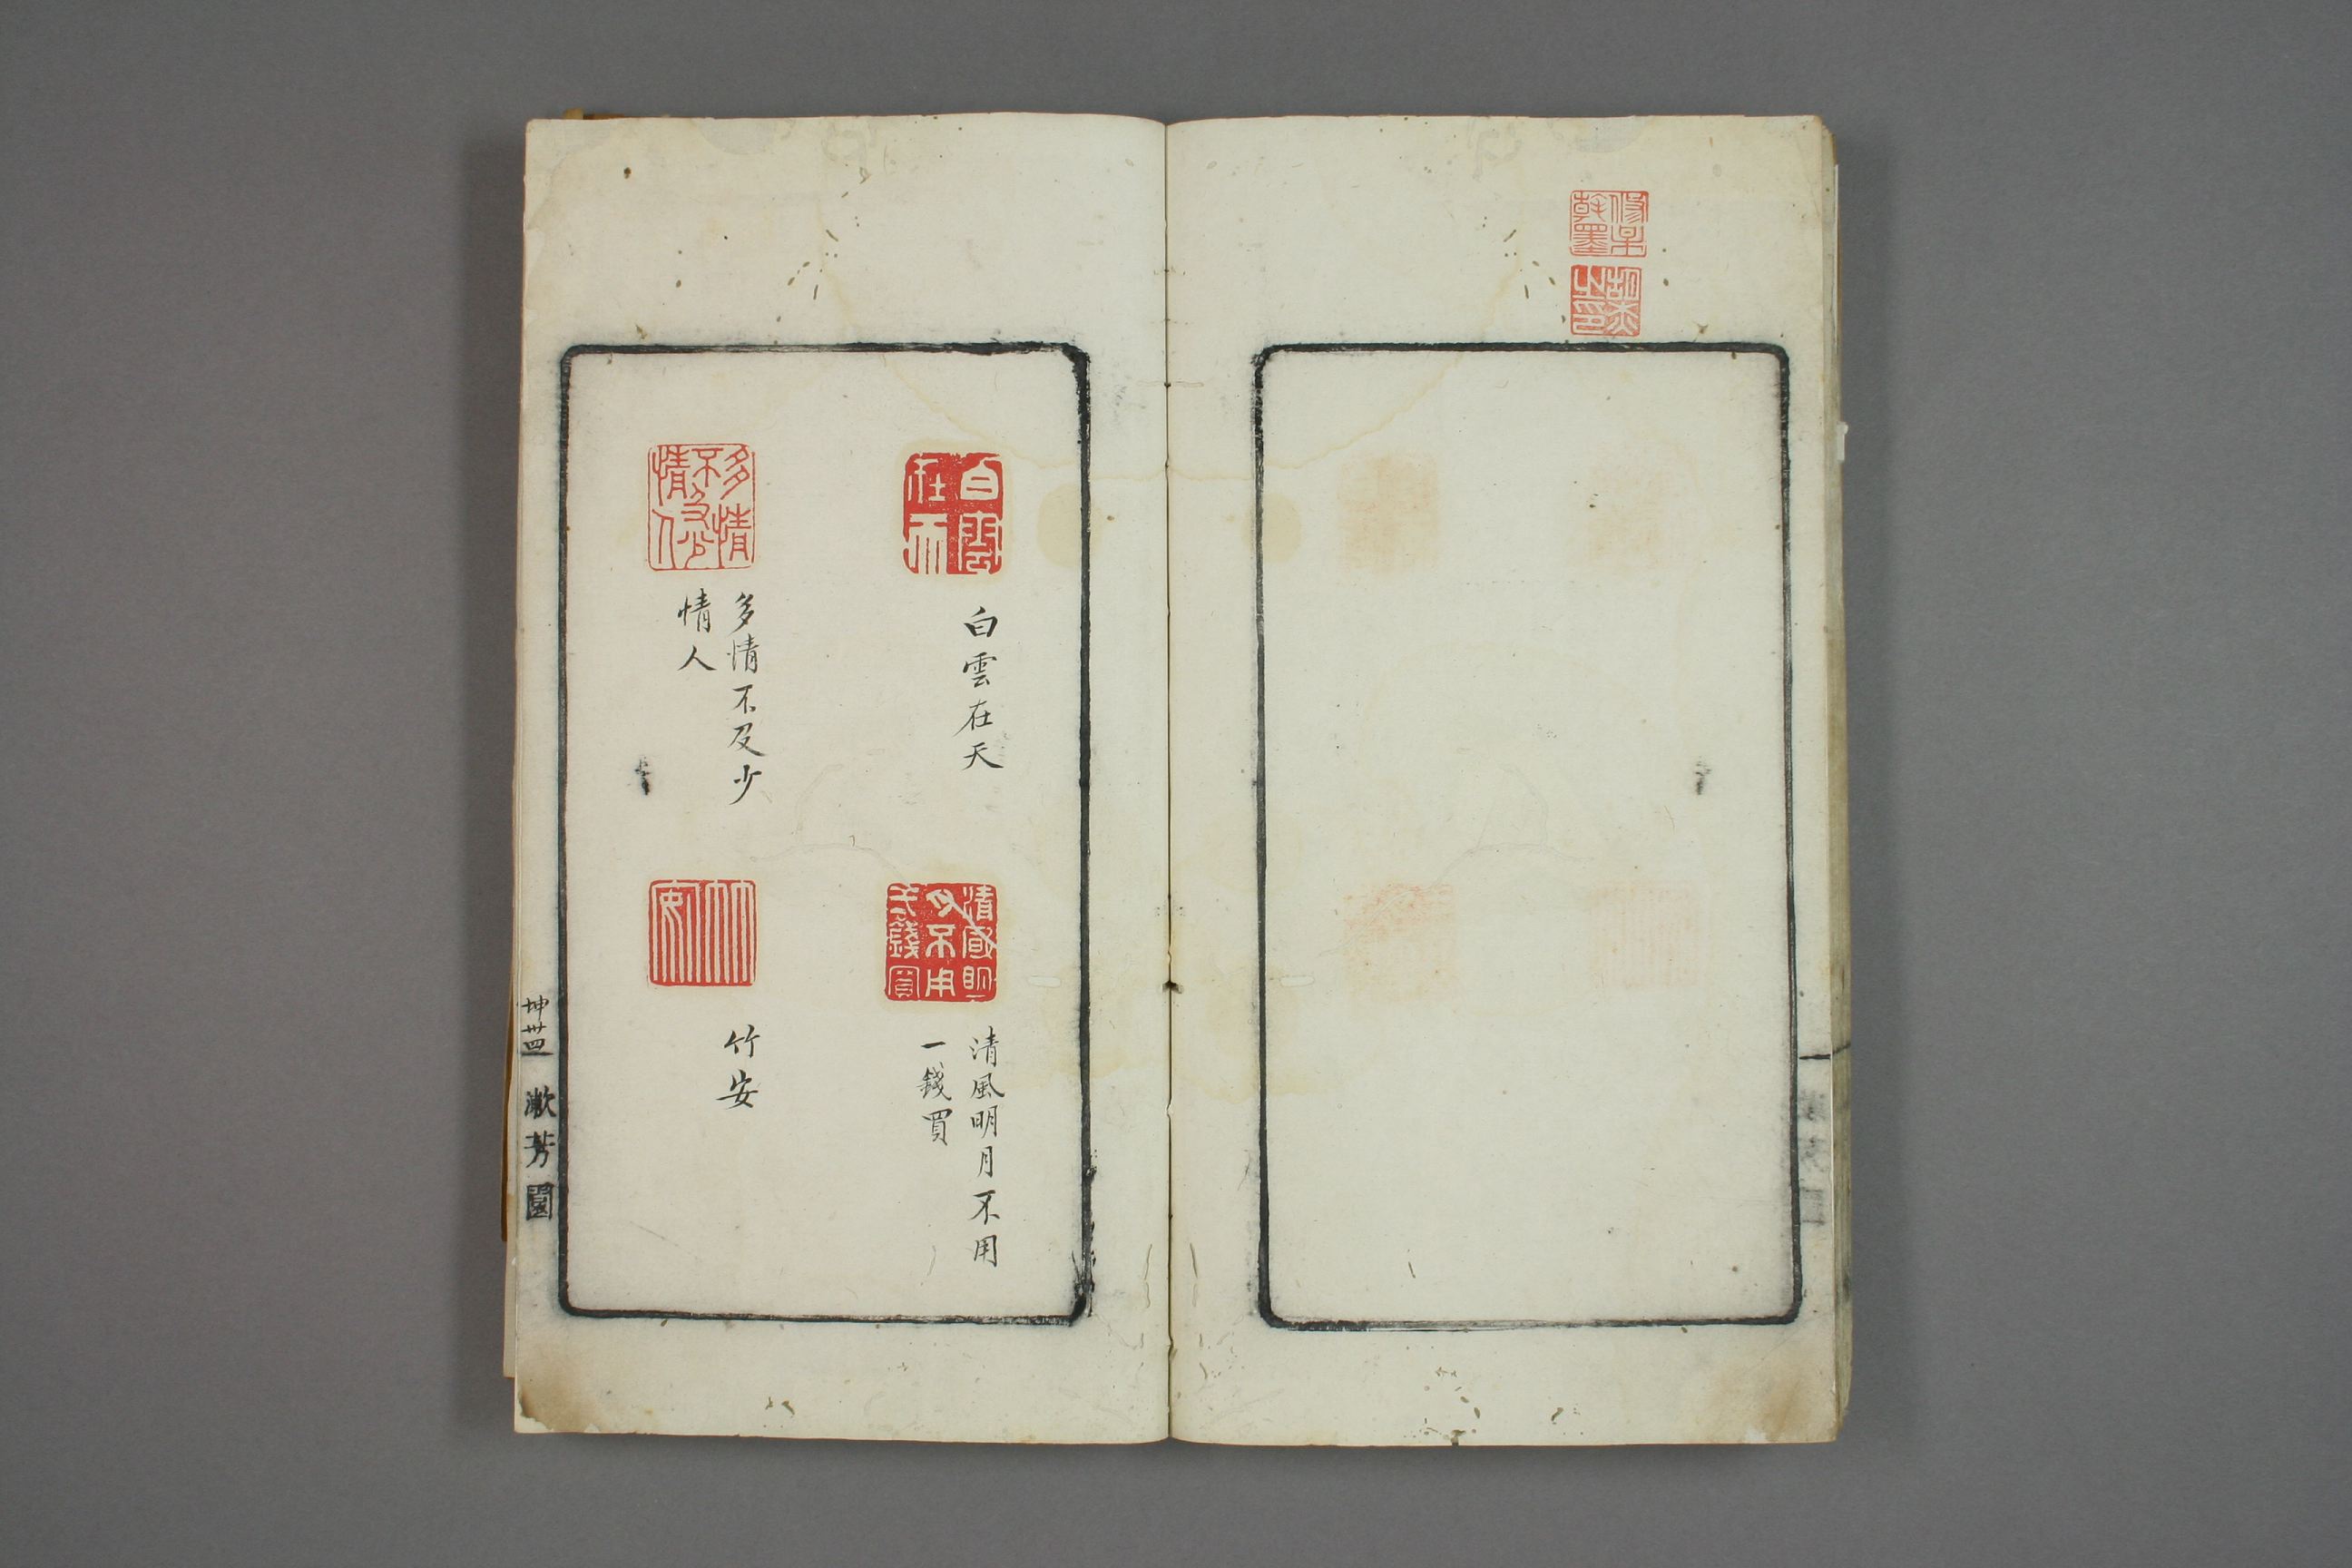 白雲在天
白雲在天
清風明月不用
一錢買
清風明月不用
弌錢買
多情
不及少
情人
多情不及少
情人
竹安
竹安
坤卅四
漱芳園